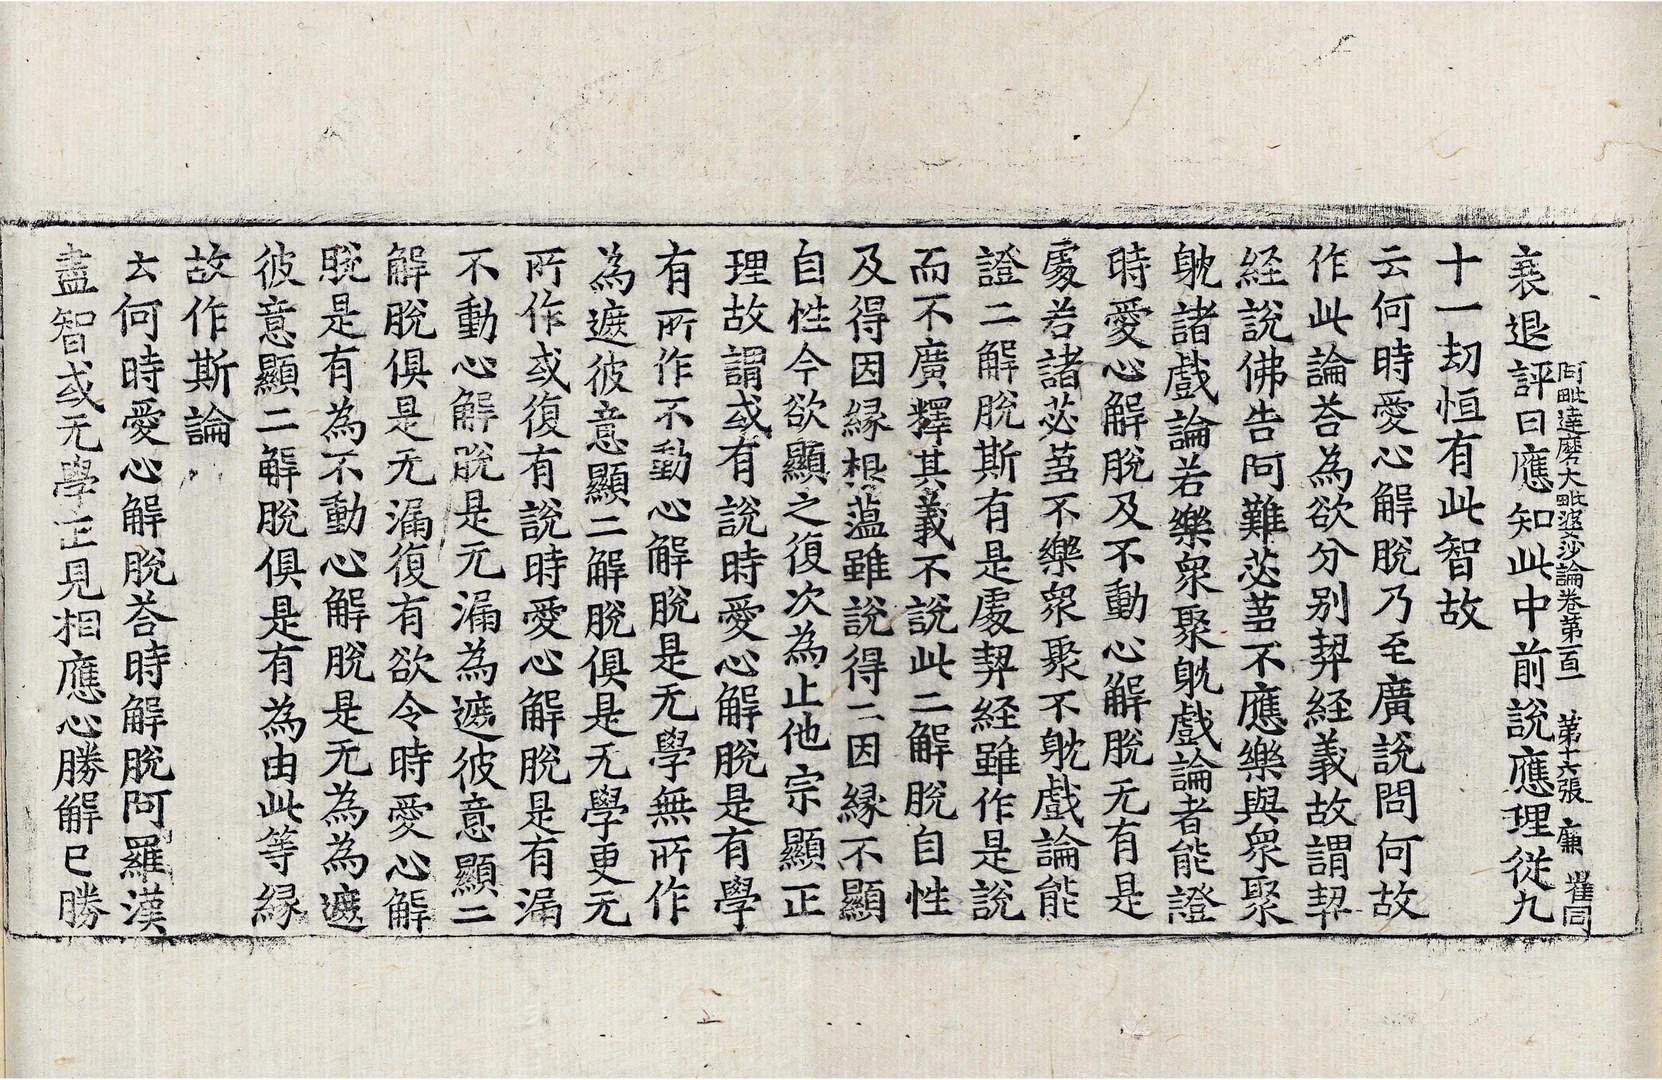 阿毗達磨大毗婆沙論卷第一百一　第十六張　廉　崔同
衰退評曰應知此中前說應理從九
十一劫恒有此智故
云何時愛心解脫乃至廣說問何故
作此論荅為欲分別契經義故謂契
經說佛告阿難苾芻不應樂與衆聚
躭諸戲論若樂衆聚躭戲論者能證
時愛心解脫及不動心解脫无有是
處若諸苾芻不樂衆聚不躭戲論能
證二解脫斯有是處契經雖作是說
而不廣釋其義不說此二解脫自性
及得因緣根蘊雖說得二因緣不顯
自性今欲顯之復次為止他宗顯正
理故謂或有說時愛心解脫是有學
有所作不動心解脫是无學無所作
為遮彼意顯二解脫俱是无學更无
所作或復有說時愛心解脫是有漏
不動心解脫是无漏為遮彼意顯二
解脫俱是无漏復有欲令時愛心解
脫是有為不動心解脫是无為為遮
彼意顯二解脫俱是有為由此等緣
故作斯論
云何時愛心解脫荅時解脫阿羅漢
盡智或无學正見相應心勝解已勝